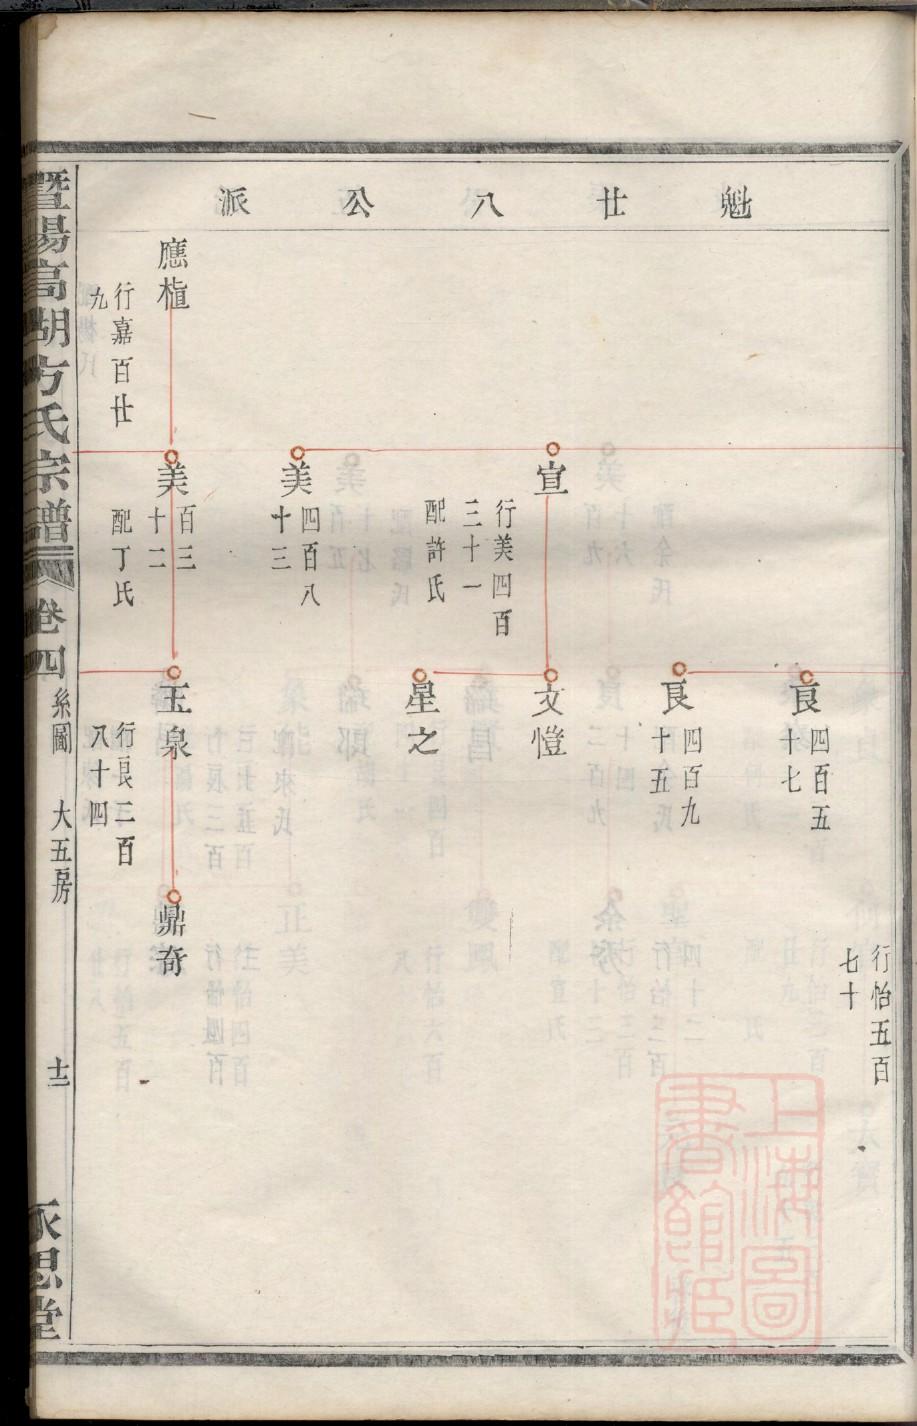 魁廿八公派
行怡五百
七十
良
四百五
十七
良
四百九
十五
宣
行美四百
三十一
配許氏
文愷
星之
美
四百八
十三
應植
行嘉百廿
九
美
百三
十二
配丁氏
玉泉
行良二百
八十四
鼎奇
暨陽高湖方氏宗譜
卷四
系圖
大五房
十二
永思堂
上海圖書館藏